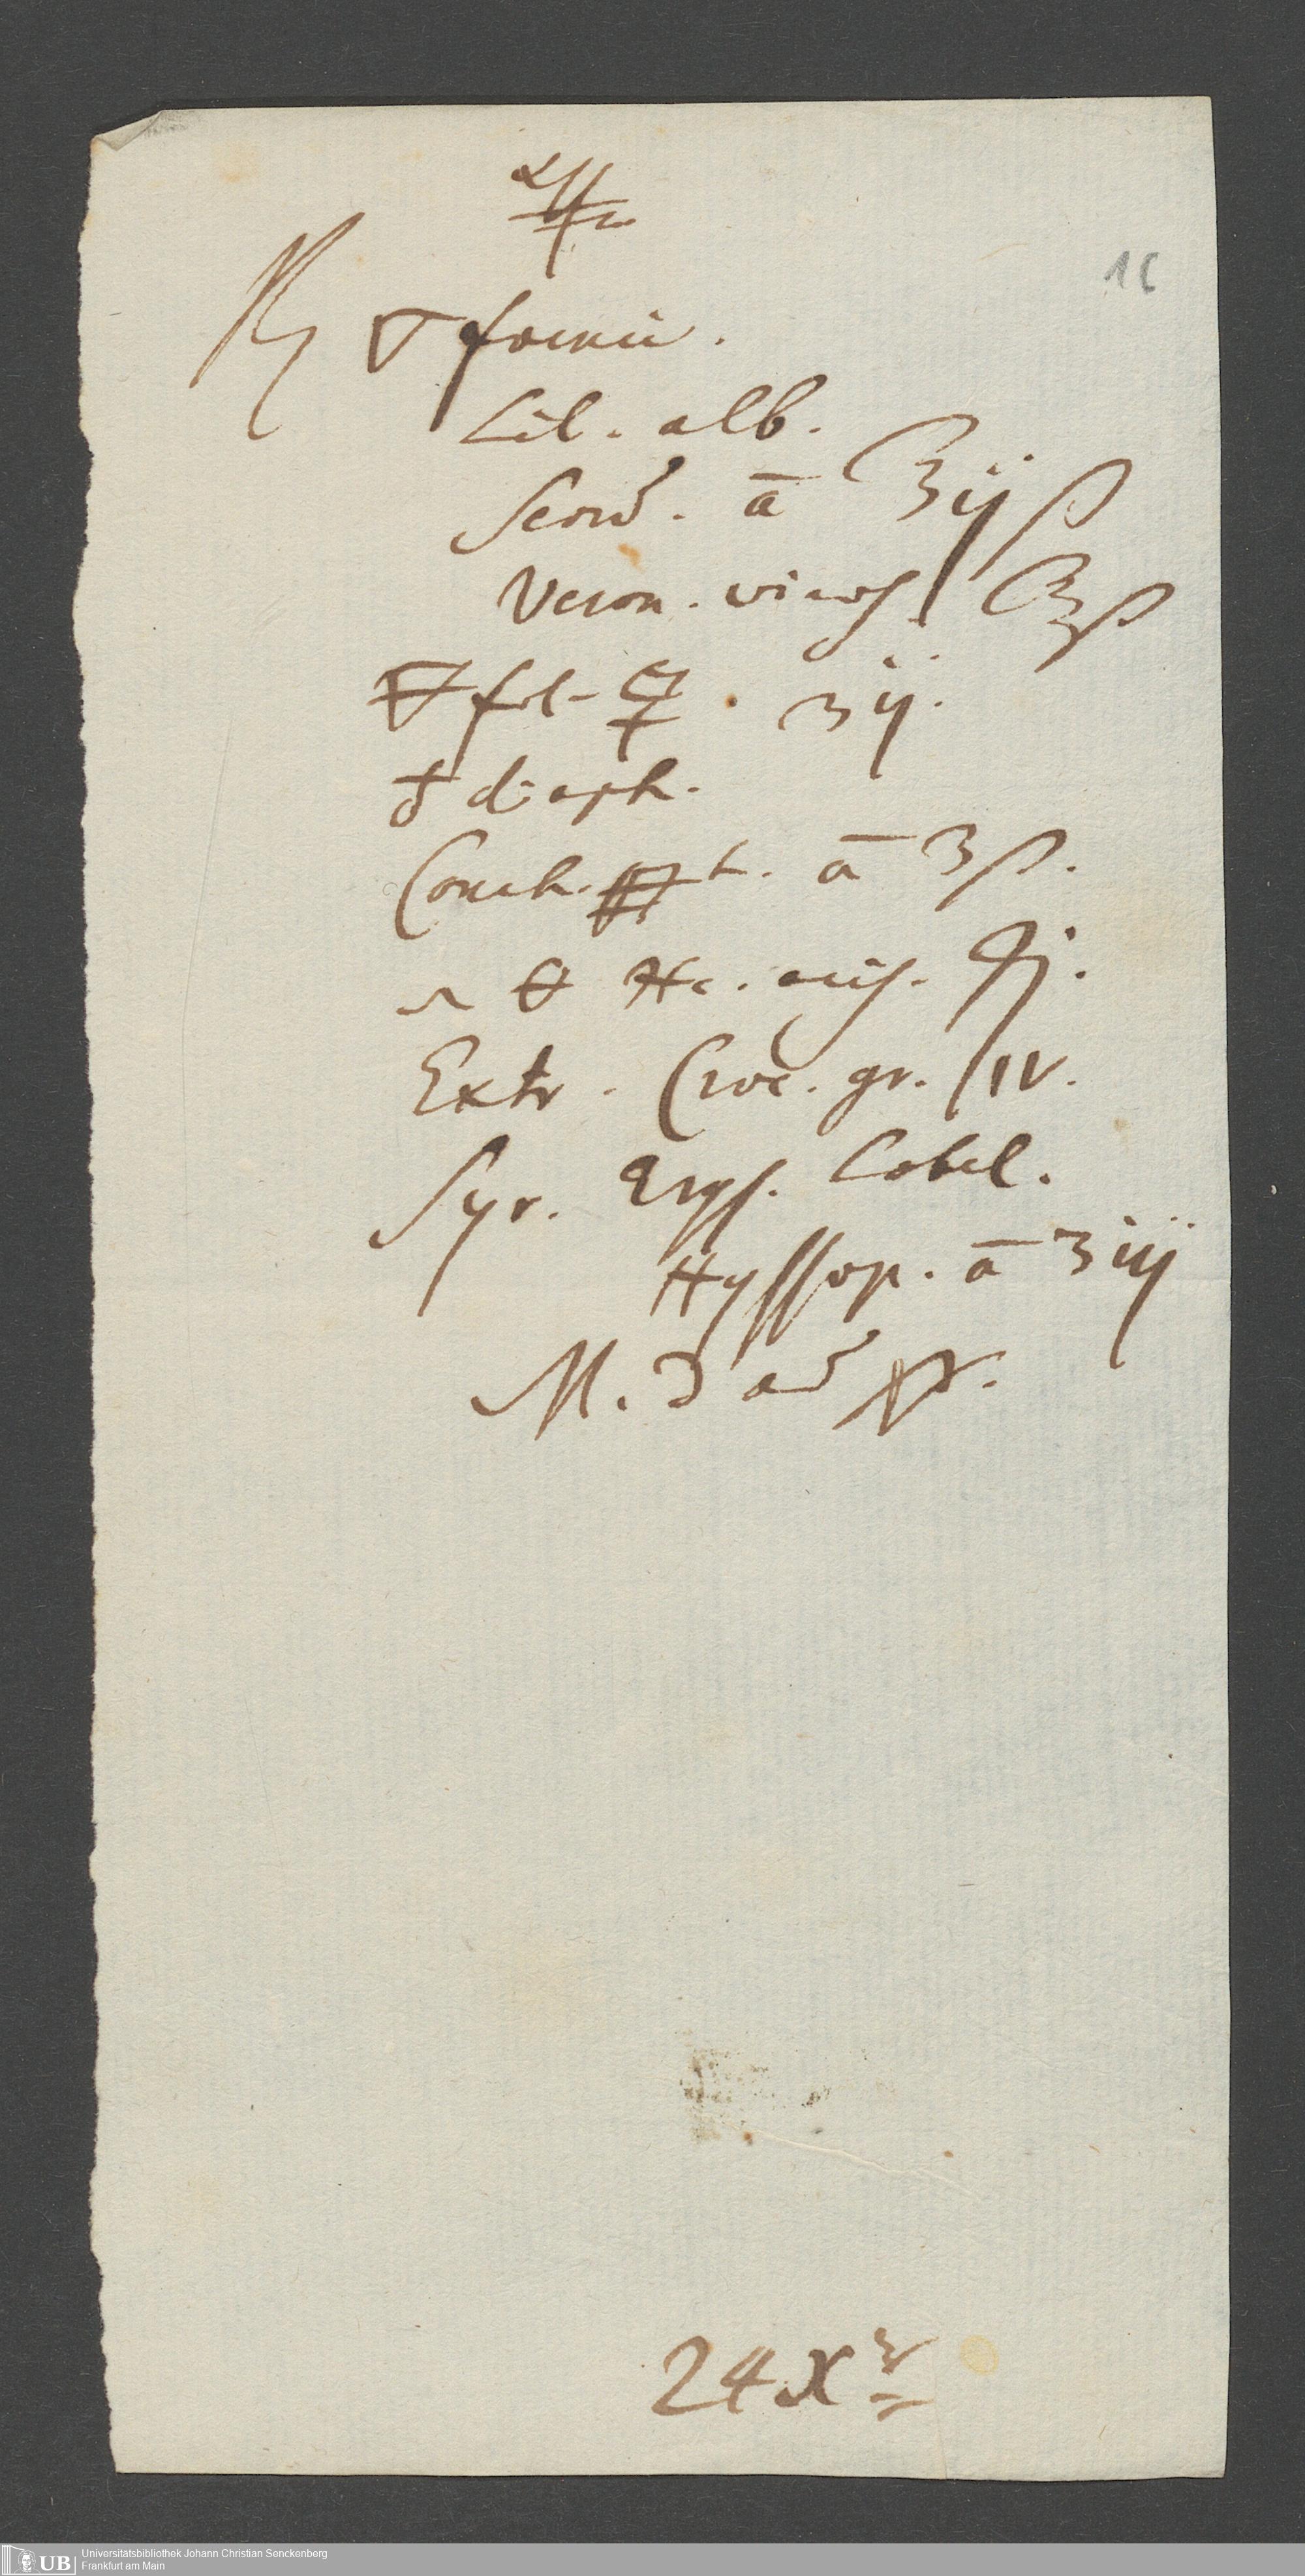 16
℞ 🜄 foenic.
Lil. alb.
Scord. ā ℥ijß
Veron. ℥ß
fol. ʒij.
♁ diaph.
Conch. ā ʒß.
℈j.
Extr. Croc. gr. IV.
Syr. Erys. Lobel.
Hyssop. ā ʒiij
M. D ad
24 Xr
UB
Universitätsbibliothek Johann Christian Senckenberg
Frankfurt am Main